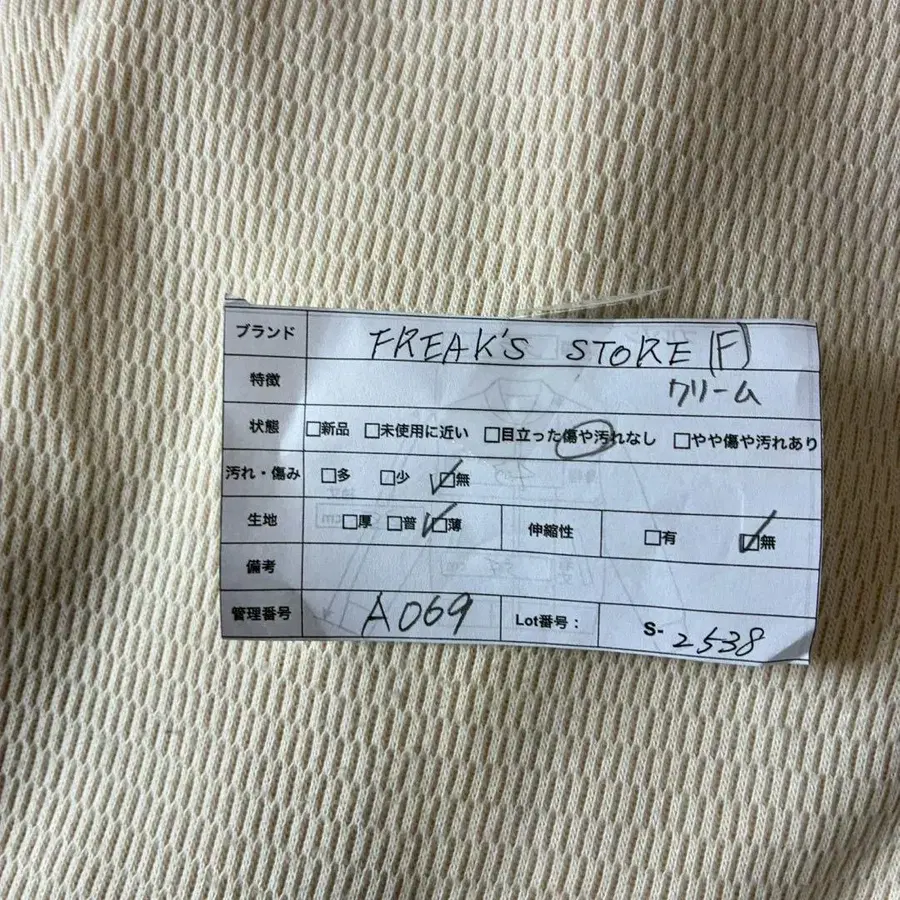 ブランド FREAK'S STORE (F)
特徴 クリーム
状態 □新品 □未使用に近い □目立った傷や汚れなし □やや傷や汚れあり
汚れ・傷み □多 □少 ☑無
生地 □厚 □普 ☑薄 伸縮性 □有 ☑無
備考
管理番号 A069 Lot番号： S-2538